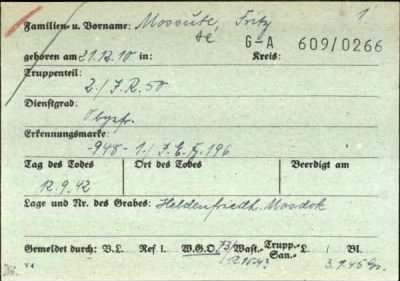 1.
Familien- u. Vorname: Moscüte, Fritz
té G-A 609/0266
geboren am 21.12.10 in: Kreis:
Truppenteil:
2./J.R. 50
Dienstgrad:
Obgfr.
Erkennungsmarke:
-948- 1./J.E.Btl. 196
Tag des Todes Ort des Todes Beerdigt am
12.9.42
Lage und Nr. des Grabes: Heldenfriedh. Mosdok
Gemeldet durch: V.L. Ref i. W.G.O. Wast.- Trupp.- San.- L. Bl.
3.1.45
V 4